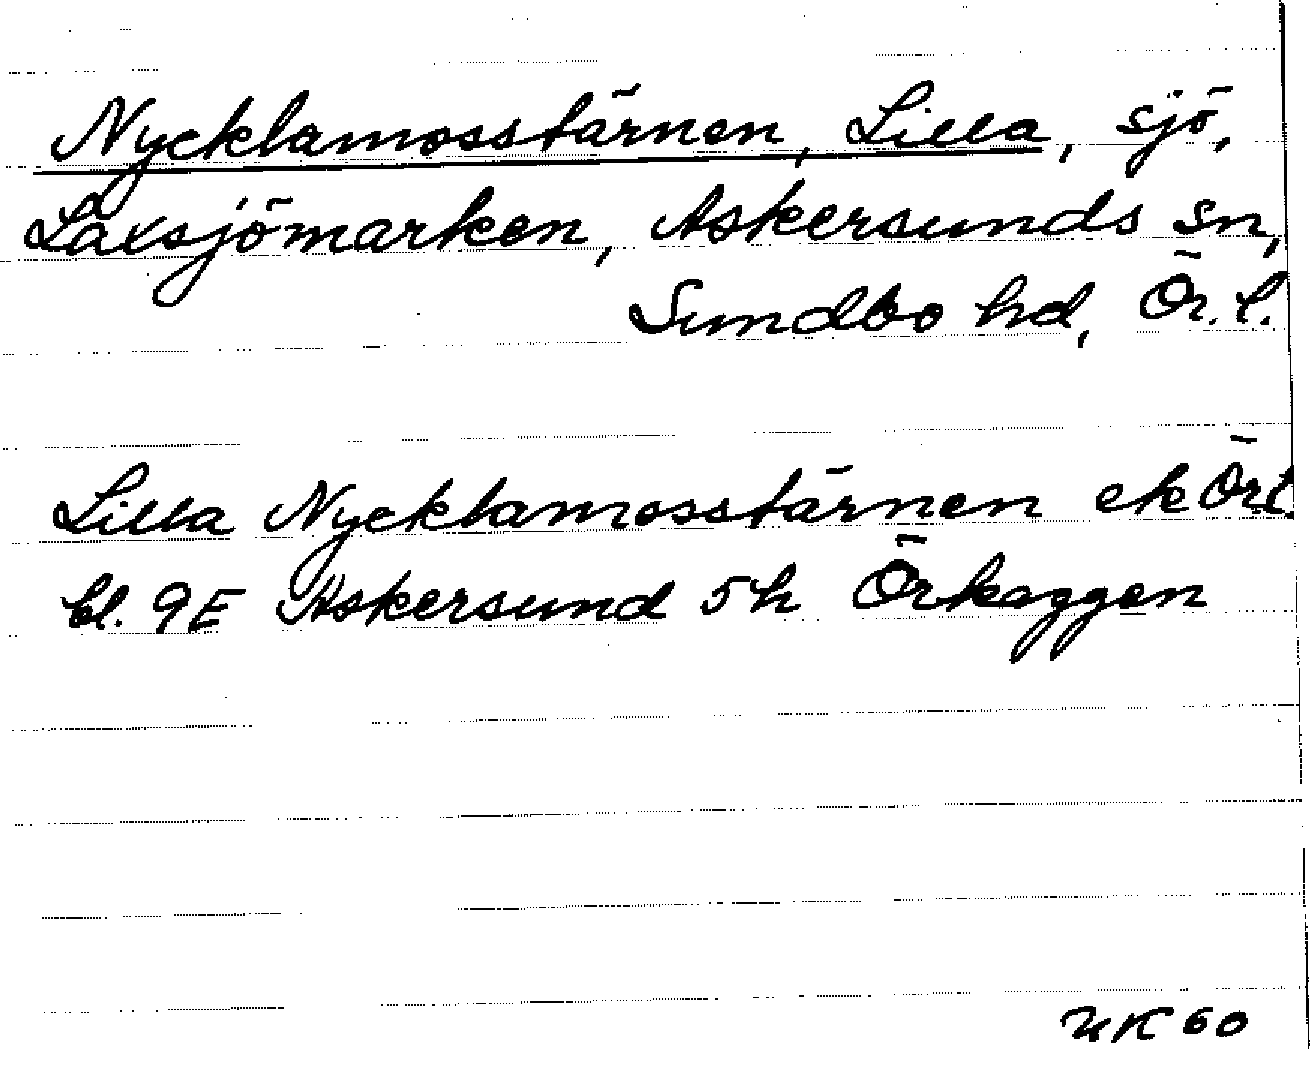 Nycklamosstärnen, Lilla, sjö,
Laxsjömarken, Askersunds sn,
Sundbo hd, Ör. l.
Lilla Nycklamosstärnen ek Ört.
bl. 9E Askersund 5h Örkaggen
UK 60